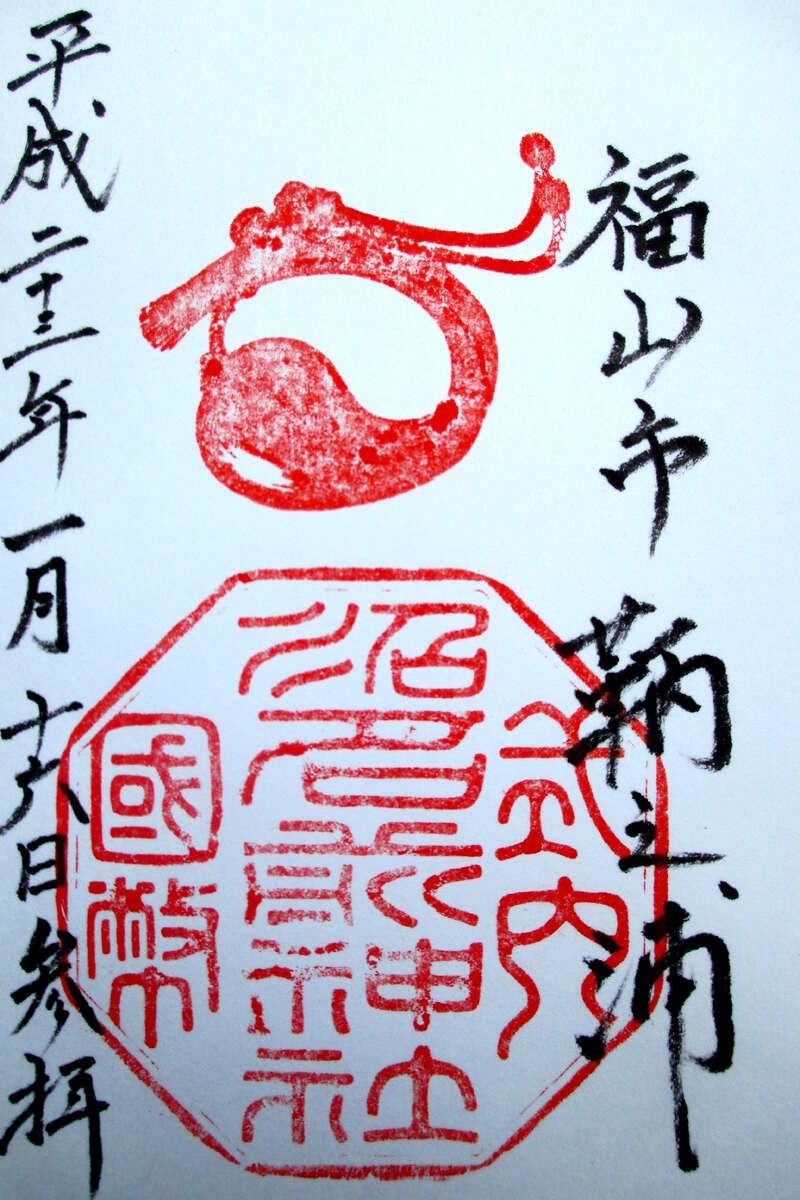 福山市 鞆之浦
式内
沼名前神社
國幣
平成二十三年一月十六日参拝